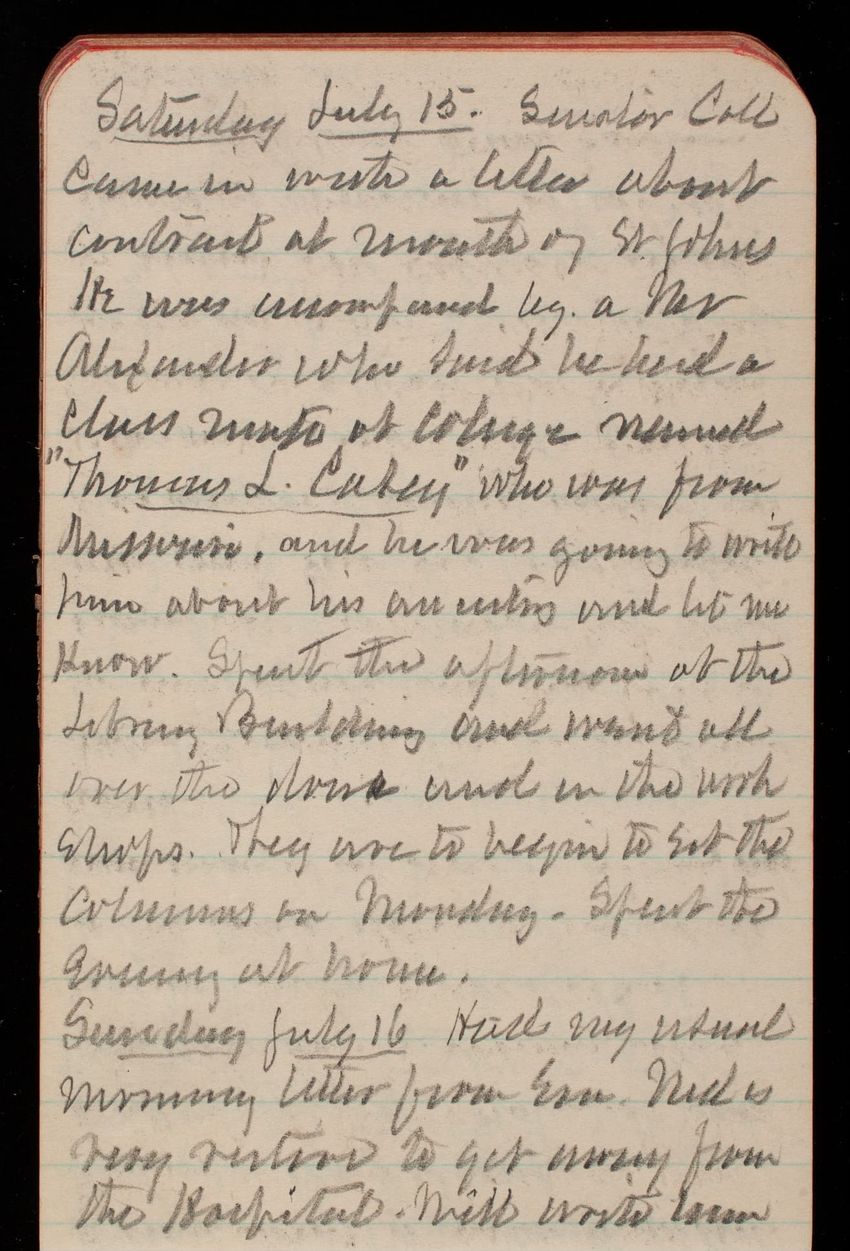 Saturday July 15. Senator Call
came in with a letter about
contract at mouth of St Johns
He was accompanied by. a Mr
Alexander who said he had a
class mate at college named
"Thomas L. Casey" who was from
Missouri, and he was going to write
him about his ancestry and let me
know. Spent the afternoon at the
Library Building and went all
over the dome and in the work
shops. They are to begin to set the
Columns on Monday. Spent the
Evening at home.
Sunday July 16 Had my usual
morning letter from Em. Ned is
very restive to get away from
the Hospital. Will write him